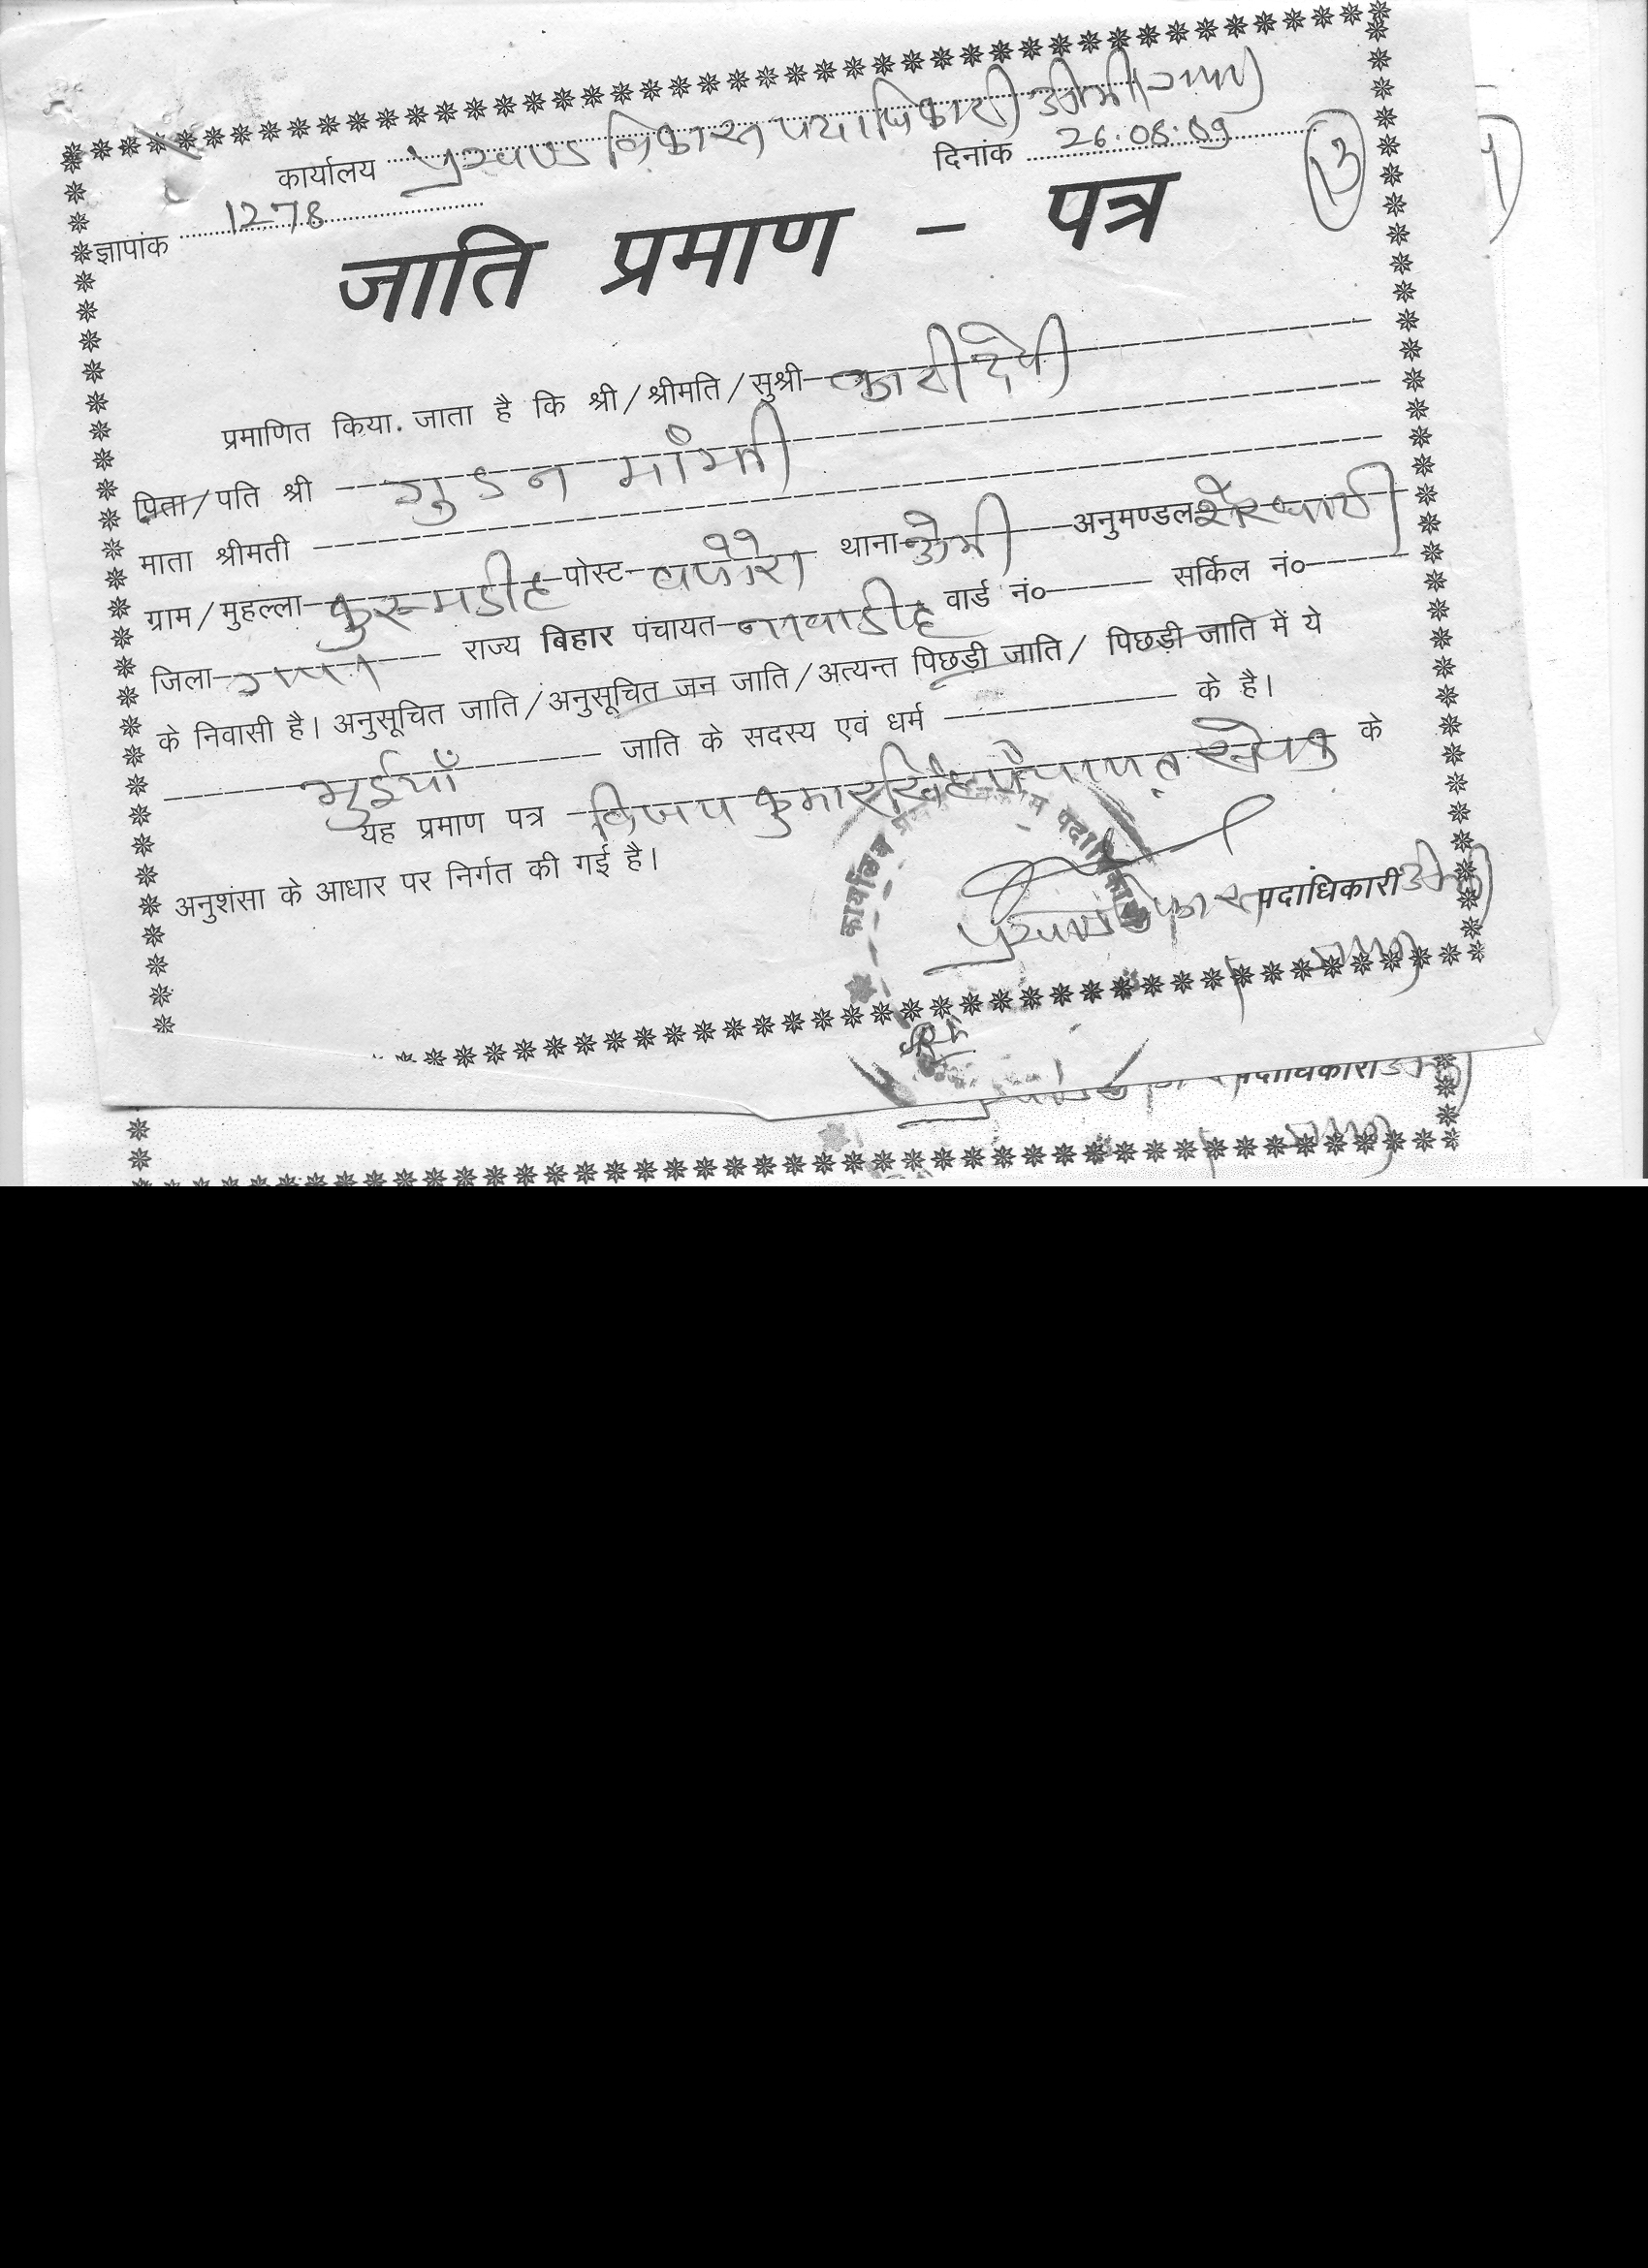 कार्यालय प्रखण्ड विकास पदाधिकारी डोभी (गया)
ज्ञापांक 1278 दिनांक 26.08.09
13
जाति प्रमाण - पत्र
प्रमाणित किया. जाता है कि श्री/श्रीमति/सुश्री कारी देवी
पिता/पति श्री गुडन मांझी
माता श्रीमती
ग्राम/मुहल्ला कुरूमडीह पोस्ट थाना डोभी अनुमण्डल शेरघाटी
जिला गया राज्य बिहार पंचायत नावाडीह वार्ड नं० सर्किल नं०
के निवासी है। अनुसूचित जाति/अनुसूचित जन जाति/अत्यन्त पिछड़ी जाति/ पिछड़ी जाति में ये
भुईयाँ जाति के सदस्य एवं धर्म के है।
यह प्रमाण पत्र विजय कुमार सिंह पंचायत सेवक के
अनुशंसा के आधार पर निर्गत की गई है।
कार्यालय प्रखण्ड विकास पदाधिकारी
प्रखण्ड विकास पदाधिकारी डोभी
पदाधिकारी